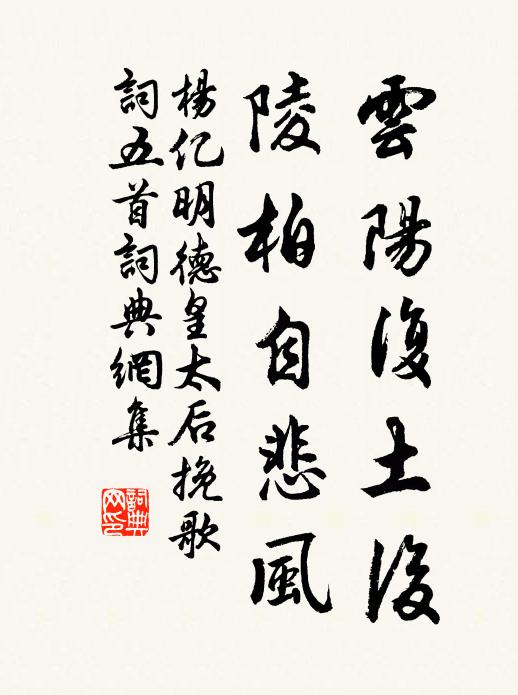 雲陽復土後
陵柏自悲風
楊亿明德皇太后挽歌
詞五首詞典網集
詞典网印